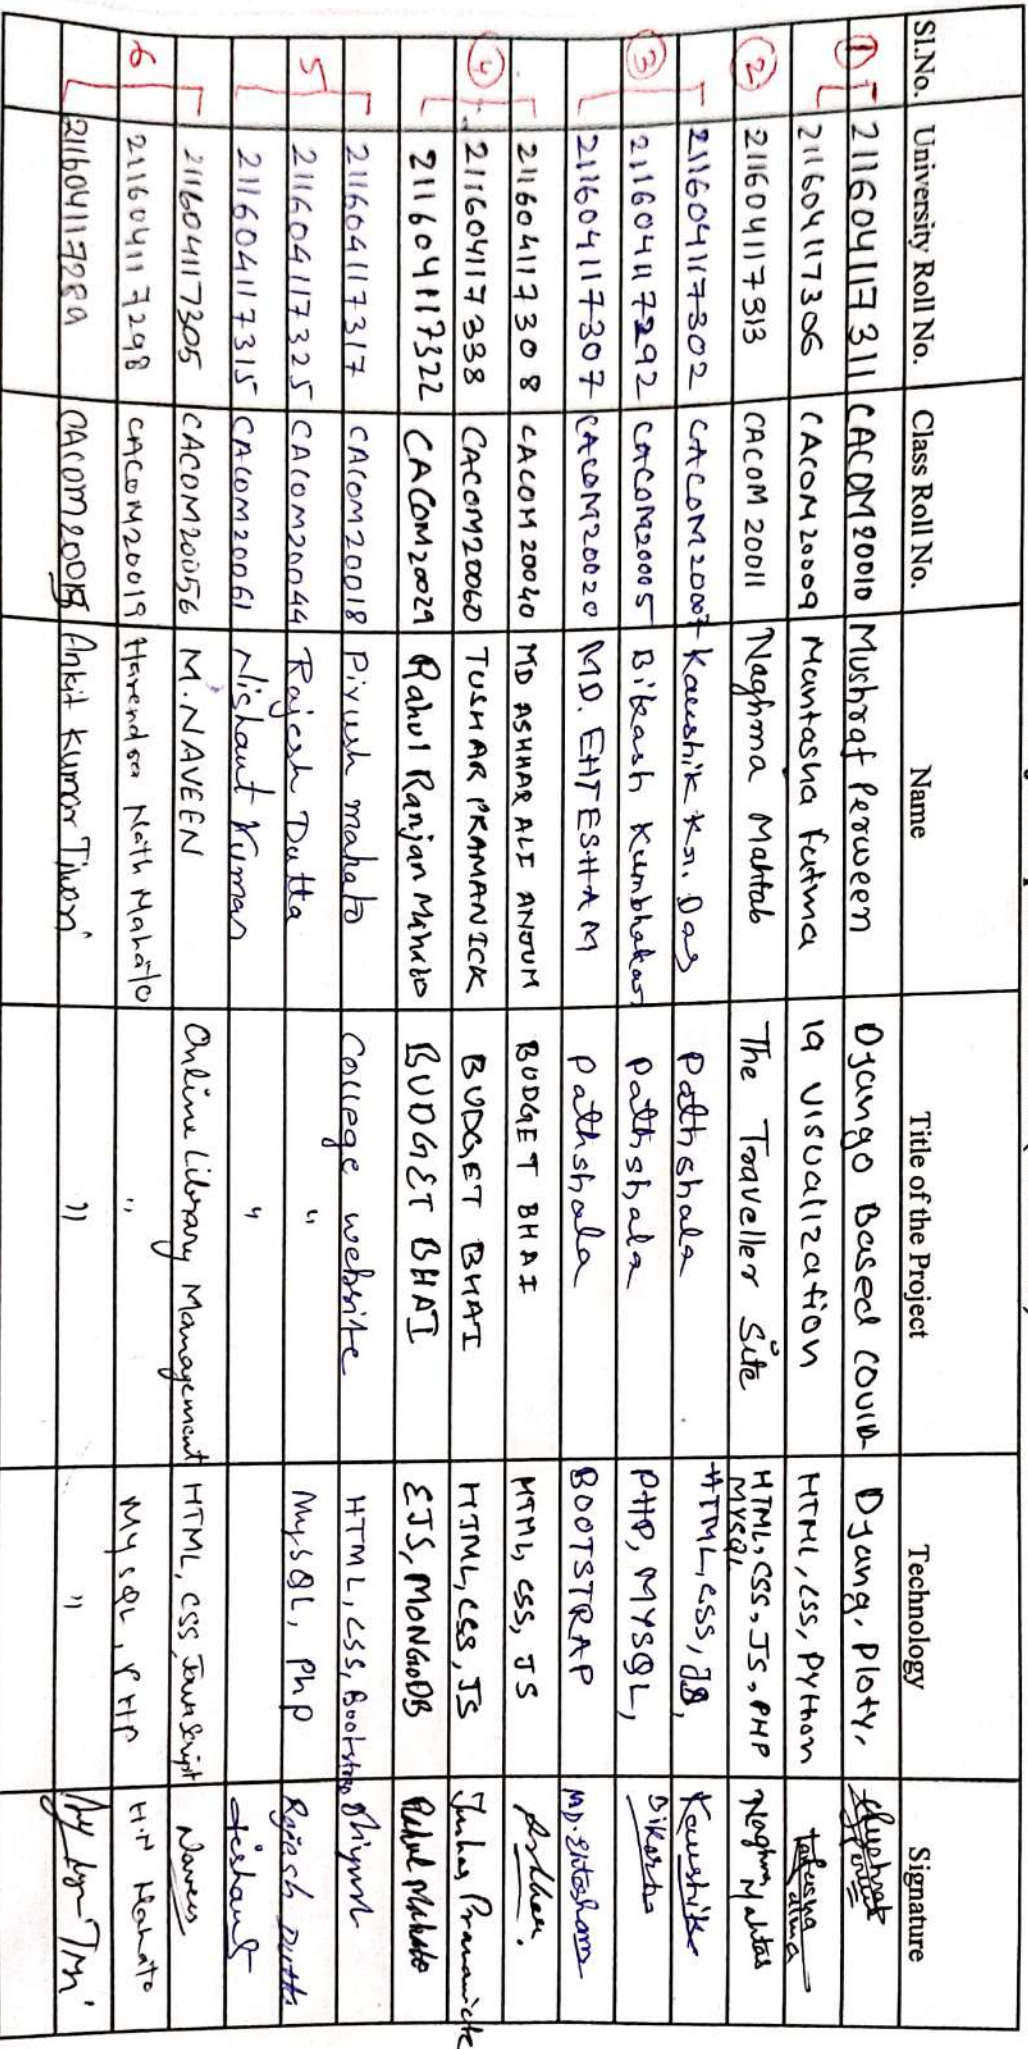 Sl.No. University Roll No. Class Roll No. Name Title of the Project Technology Signature
① 211604117311 CACOM20010 Mushraf Perween Django Based COVID- Djang, Ploty,
211604117306 CACOM20009 Mantasha Fatma 19 visualization HTML, CSS, Python
② 211604117313 CACOM20011 Naghma Mahtab The Traveller Site HTML, CSS, JS, PHP MYSQL Naghma Mahtab
211604117302 CACOM20007 Kaushik Kr. Das Pathshala HTML, CSS, JS, Kaushik
③ 211604117292 CACOM20005 Bikash Kumbhakar Pathshala PHP, MYSQL, Bikash
211604117307 CACOM20020 MD. EHTESHAM Pathshala BOOTSTRAP MD. Ehtesham
211604117308 CACOM20040 MD ASHHAR ALI ANJUM BUDGET BHAI HTML, CSS, JS Ashhar.
④ 211604117338 CACOM20060 TUSHAR PRAMANICK BUDGET BHAI HTML, CSS, JS Tushar Pramanick
211604117322 CACOM20029 Rahul Ranjan Mahato BUDGET BHAI EJS, MONGODB Rahul Mahato
211604117317 CACOM20018 Piyush mahato College website HTML, CSS, Bootstrap Piyush
5 211604117325 CACOM20044 Rajesh Dutta " MySQL, Php Rajesh Dutta
211604117315 CACOM20061 Nishant Kumar " Nishant
211604117305 CACOM20056 M. NAVEEN Online Library Management HTML, CSS, JavaScript Naveen
6 211604117298 CACOM20019 Harendra Nath Mahato " MySQL, PHP H.N Mahato
21160411728 Ankit Kumar Tiwari " "